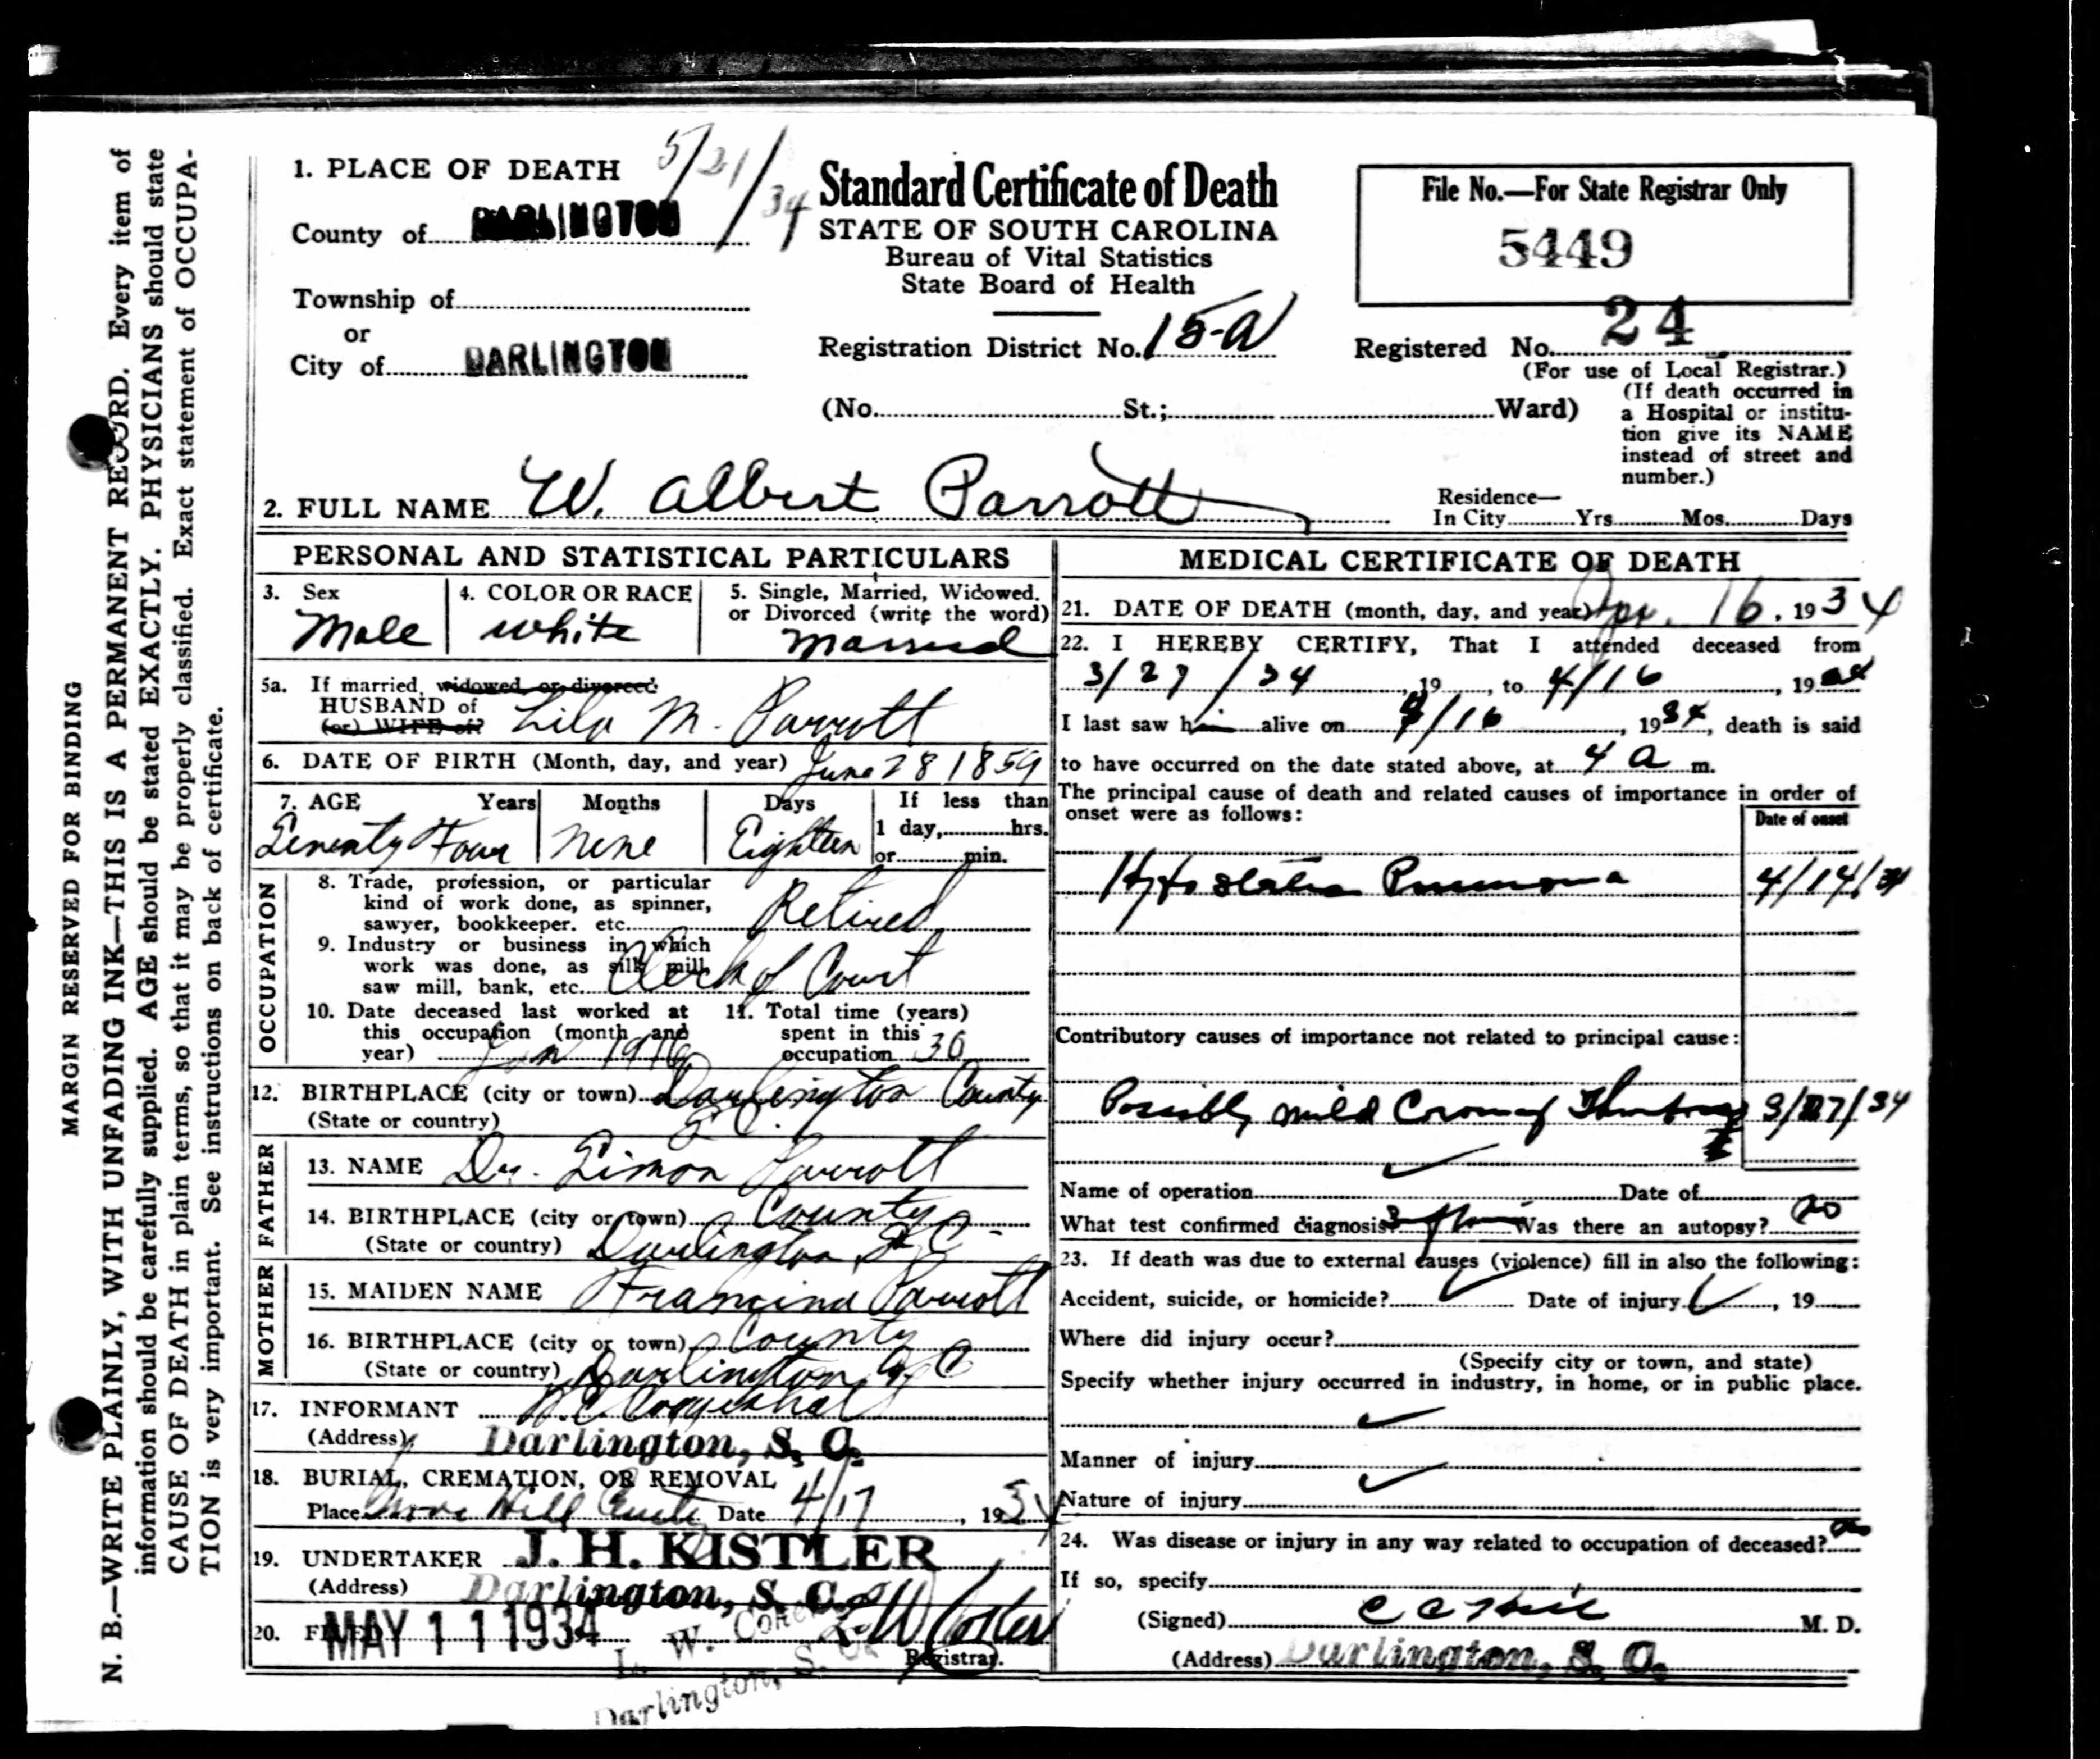 MARGIN RESERVED FOR BINDING
N. B.—WRITE PLAINLY, WITH UNFADING INK—THIS IS A PERMANENT RECORD. Every item of
information should be carefully supplied. AGE should be stated EXACTLY. PHYSICIANS should state
CAUSE OF DEATH in plain terms, so that it may be properly classified. Exact statement of OCCUPA-
TION is very important. See instructions on back of certificate.
1. PLACE OF DEATH
5/21/34
County of DARLINGTON
Township of
or
City of DARLINGTON
Standard Certificate of Death
STATE OF SOUTH CAROLINA
Bureau of Vital Statistics
State Board of Health
Registration District No. 15-A
(No. St.; Ward)
File No.—For State Registrar Only
5449
Registered No. 24
(For use of Local Registrar.)
(If death occurred in
a Hospital or institu-
tion give its NAME
instead of street and
number.)
2. FULL NAME W. Albert Parrott
Residence—
In City Yrs. Mos. Days
PERSONAL AND STATISTICAL PARTICULARS
3. Sex
Male
4. COLOR OR RACE
White
5. Single, Married, Widowed.
or Divorced (write the word)
Married
5a. If married, widowed, or divorced
HUSBAND of
(or) WIFE of?
Lila M. Parrott
6. DATE OF BIRTH (Month, day, and year) June 28 1859
7. AGE Years Months Days If less than
1 day, hrs.
or min.
Seventy Four Nine Eighteen
OCCUPATION
8. Trade, profession, or particular
kind of work done, as spinner,
sawyer, bookkeeper. etc. Retired
9. Industry or business in which
work was done, as silk mill,
saw mill, bank, etc. Clerk of Court
10. Date deceased last worked at
this occupation (month and
year) Jan
11. Total time (years)
spent in this
occupation 30
12. BIRTHPLACE (city or town) Darlington County
(State or country) S C.
FATHER
13. NAME Dr. Simon Parrott
14. BIRTHPLACE (city or town) County
(State or country) Darlington S. C.
MOTHER
15. MAIDEN NAME Francina Parrott
16. BIRTHPLACE (city or town) County
(State or country) Darlington S. C
17. INFORMANT
(Address) Darlington, S. C.
18. BURIAL, CREMATION, OR REMOVAL
Place Grove Hill Date 4/17, 1934
19. UNDERTAKER J. H. KISTLER
(Address) Darlington, S. C.
20. FILED MAY 11 1934
L. W.
Registrar.
Darlington, S. C.
MEDICAL CERTIFICATE OF DEATH
21. DATE OF DEATH (month, day, and year) Apr. 16, 1934
22. I HEREBY CERTIFY, That I attended deceased from
3/27/34, 19 , to 4/16, 1934
I last saw him alive on 4/16, 1934, death is said
to have occurred on the date stated above, at 4 a m.
The principal cause of death and related causes of importance in order of
onset were as follows:
Date of onset
Hypostatic Pneumonia 4/14/34
Contributory causes of importance not related to principal cause:
Possibly mild Coronary Thrombosis 3/27/34
Name of operation Date of
What test confirmed diagnosis? Was there an autopsy? no
23. If death was due to external causes (violence) fill in also the following:
Accident, suicide, or homicide? Date of injury , 19
Where did injury occur?
(Specify city or town, and state)
Specify whether injury occurred in industry, in home, or in public place.
Manner of injury
Nature of injury
24. Was disease or injury in any way related to occupation of deceased? no
If so, specify
(Signed) C C Hill M. D.
(Address) Darlington, S. C.